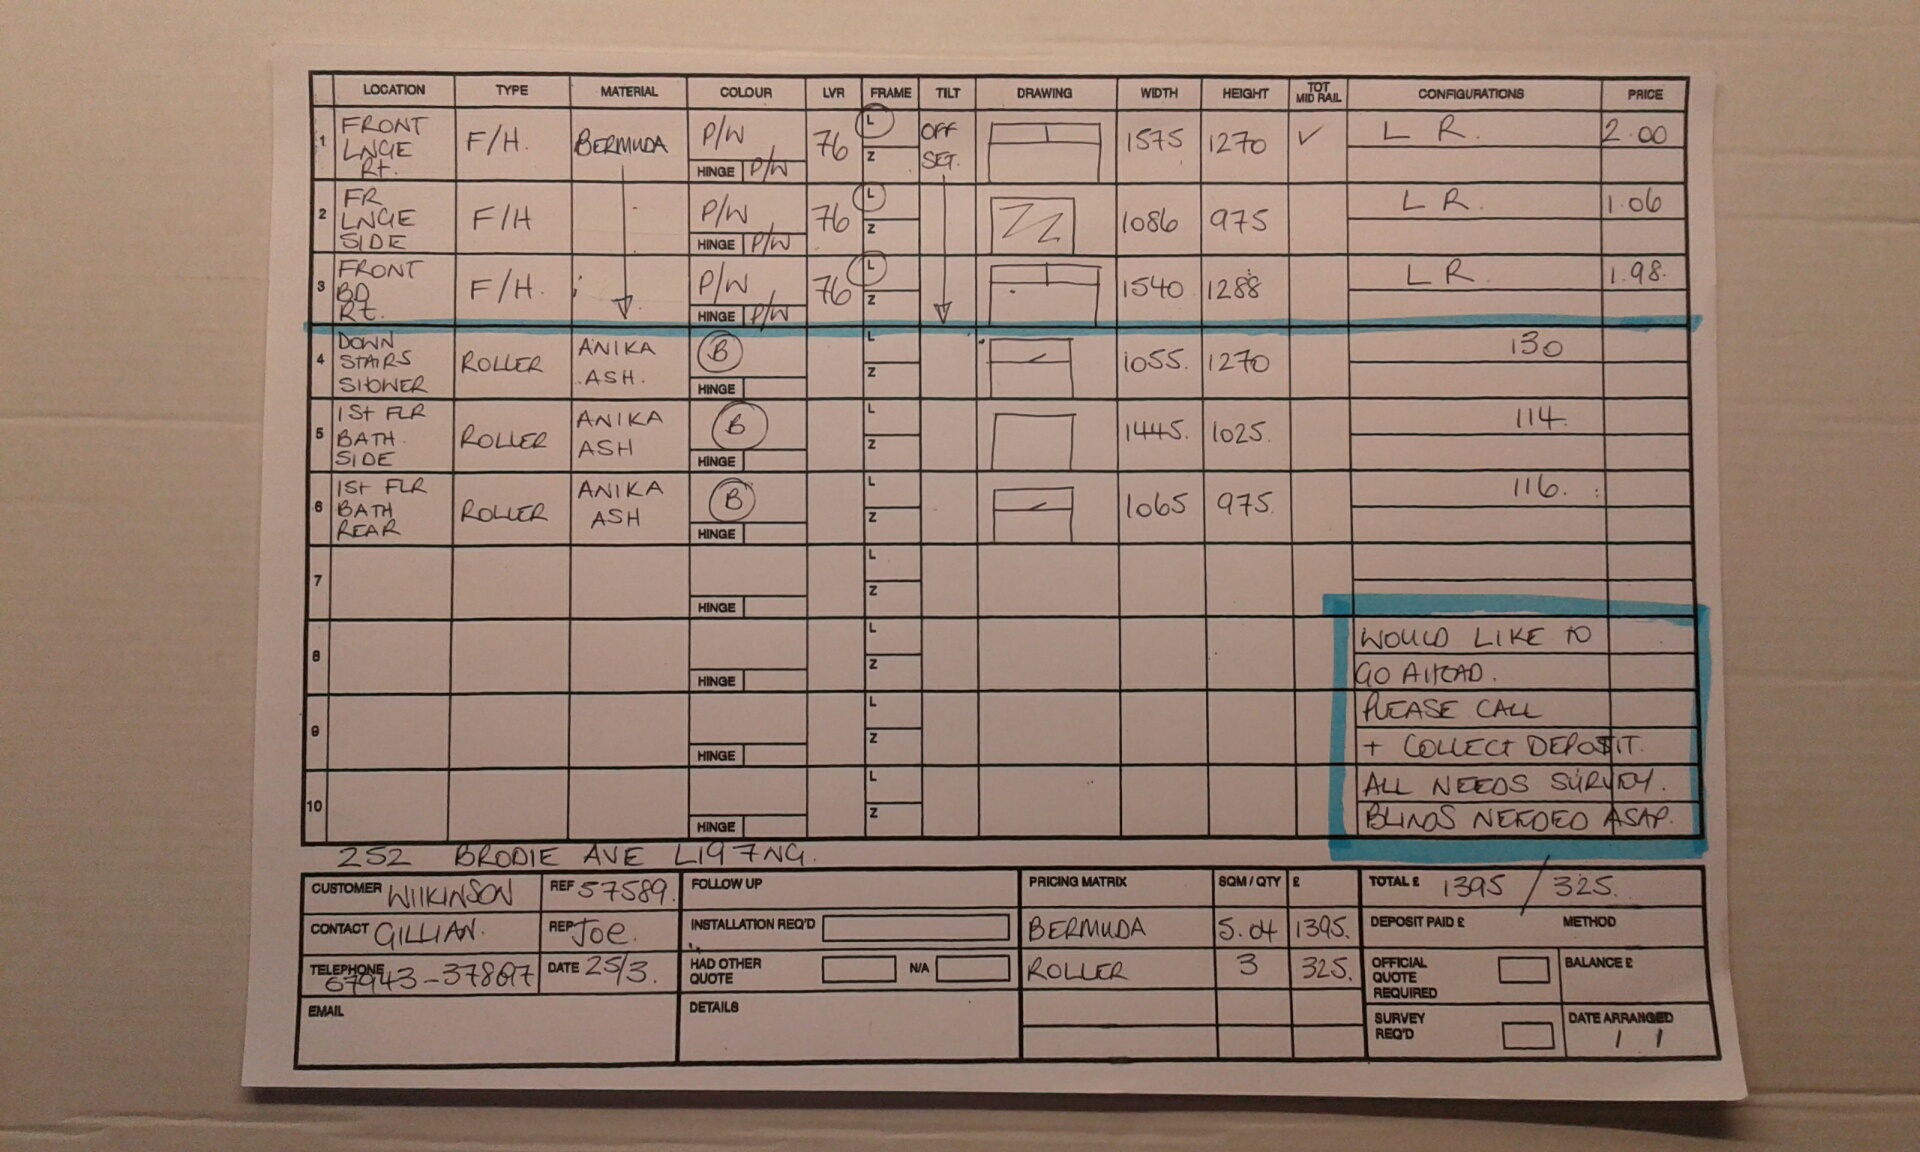 LOCATION TYPE MATERIAL COLOUR LVR FRAME TILT DRAWING WIDTH HEIGHT TOT MID RAIL CONFIGURATIONS PRICE
1 FRONT LNGE Rt. F/H. BERMUDA P/W HINGE P/W 76 L Z OFF SET. 1575 1270 ✓ L R. 2.00
2 FR LNGE SIDE F/H P/W HINGE P/W 76 L Z 1086 975 L R. 1.06
3 FRONT BD Rt. F/H. P/W HINGE P/W 76 L Z 1540 1288 L R. 1.98.
4 DOWN STAIRS SHOWER ROLLER ANIKA ASH. B HINGE L Z 1055. 1270 130
5 1St FLR BATH. SIDE ROLLER ANIKA ASH B HINGE L Z 1445. 1025. 114.
6 1St FLR BATH REAR ROLLER ANIKA ASH B HINGE L Z 1065 975. 116.
7 HINGE L Z
8 HINGE L Z
9 HINGE L Z
10 HINGE L Z
WOULD LIKE TO
GO AHEAD.
PLEASE CALL
+ COLLECT DEPOSIT.
ALL NEEDS SURVEY.
BLINDS NEEDED ASAP.
252 BRODIE AVE L19 7NG.
CUSTOMER WILKINSON REF 57589. FOLLOW UP PRICING MATRIX SQM / QTY £ TOTAL £ 1395 / 325.
CONTACT GILLIAN. REP Joe. INSTALLATION REQ'D BERMUDA 5.04 1395. DEPOSIT PAID £ METHOD
TELEPHONE DATE 25/3. HAD OTHER QUOTE N/A ROLLER 3 325. OFFICIAL QUOTE REQUIRED BALANCE £
EMAIL DETAILS SURVEY REQ'D DATE ARRANGED / /